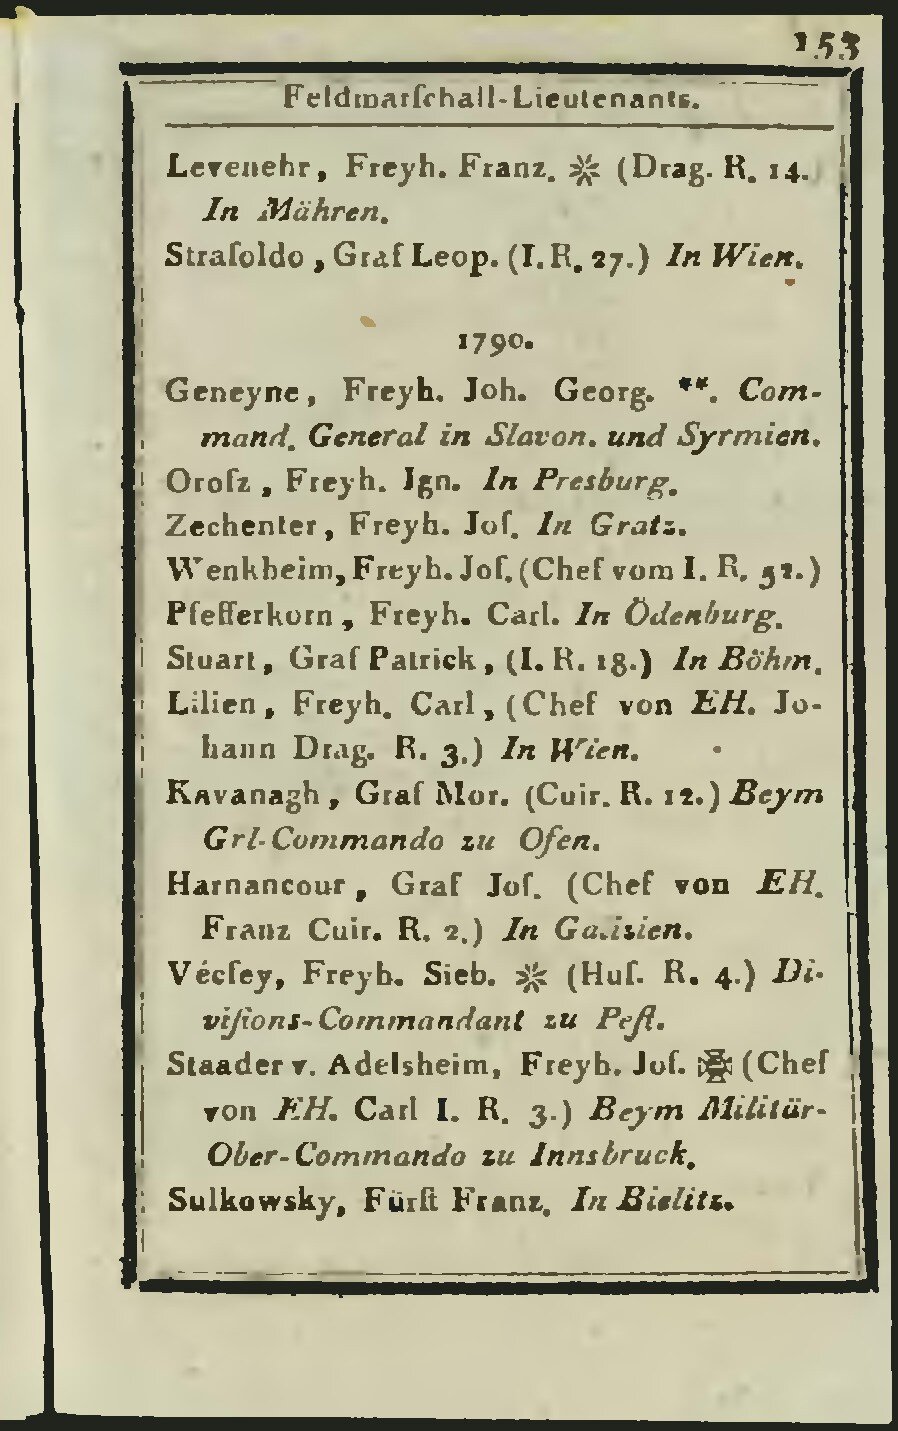 153
Feldmarſchall-Lieutenants.
Levenehr, Freyh. Franz. ※ (Drag. R. 14.
In Mähren.
Straſoldo, Graf Leop. (I. R. 27.) In Wien.
1790.
Geneyne, Freyh. Joh. Georg. **. Com-
mand. General in Slavon. und Syrmien.
Oroſz, Freyh. Ign. In Presburg.
Zechenter, Freyh. Joſ. In Gratz.
Wenkheim, Freyh. Joſ. (Chef vom I. R.
Pfefferkorn, Freyh. Carl. In Ödenburg.
Stuart, Graf Patrick, (I. R. 18.) In Böhm.
Lilien, Freyh. Carl, (Chef von EH. Jo-
hann Drag. R. 3.) In Wien.
Kavanagh, Graf Mor. (Cuir. R. 12.) Beym
Grl-Commando zu Ofen.
Harnancour, Graf Joſ. (Chef von EH.
Franz Cuir. R. 2.) In Galizien.
Vécſey, Freyh. Sieb. ※ (Huſ. R. 4.) Di-
viſions-Commandant zu Peſt.
Staader v. Adelsheim, Freyh. Joſ. ✠ (Chef
von EH. Carl I. R. 3.) Beym Militär-
Ober-Commando zu Innsbruck.
Sulkowsky, Fürſt Franz. In Bielitz.